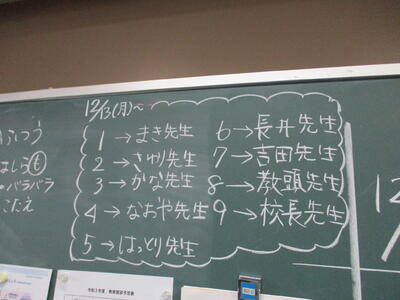 12/13(月)~
1→まき先生
2→さゆり先生
3→かな先生
4→なおや先生
5→はっとり先生
6→長井先生
7→吉田先生
8→教頭先生
9→校長先生
ふつう
はしら も
・バラバラ
こたえ